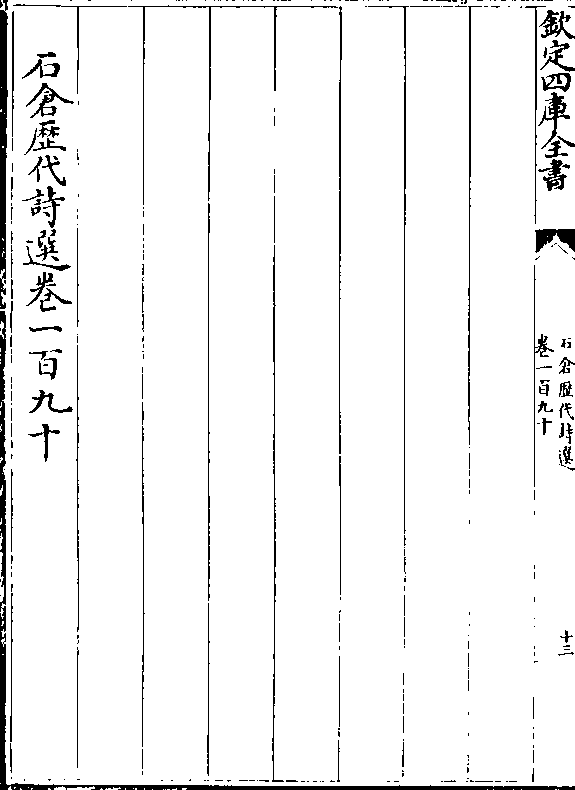 欽定四庫全書
石倉歷代詩選
卷一百九十
十三
石倉歷代詩選卷一百九十